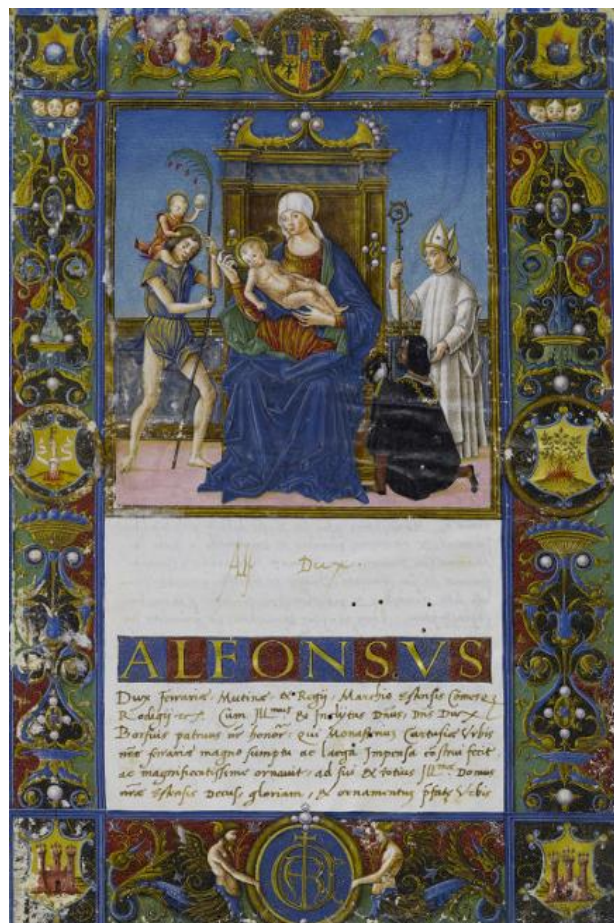 Alf Dux.
ALFONSVS
Dux Ferrariæ. Mutinæ. et Regij. Marchio Estensis Comes
Rodigij Cum Ill.mus et Inclytus Dñus. Dñs Dux
Borsius patruus nr honor. qui Monasterium Cartusiæ Urbis
nræ ferrariæ magno sumptu ac larga Impensa cõstrui fecit
ac magnificentissime ornauit. ad sui et totius Ill.mæ Domus
nræ Estensis Decus, gloriam, et ornamentus Urbis